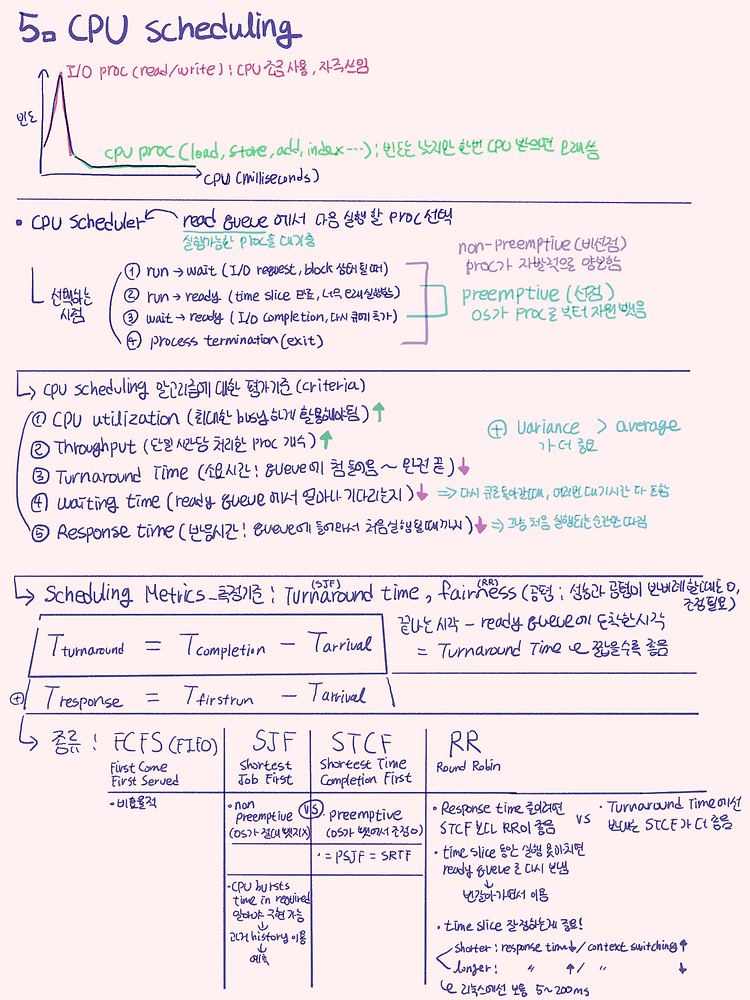 5. CPU scheduling
I/O proc (read/write) : CPU 조금 사용, 자주 쓰임
빈도
CPU proc (load, store, add, index ...) : 빈도는 낮지만 한번 CPU 받으면 오래 씀
CPU (milliseconds)
• CPU scheduler
read queue 에서 다음 실행할 proc 선택
실행가능한 proc들 대기줄
non-preemptive (비선점)
proc가 자발적으로 양보함
선택하는
시점
① run → wait (I/O request, block 상태 될 때)
② run → ready (time slice 만료, 너무 오래 실행함)
③ wait → ready (I/O completion, 다시 큐에 추가)
④ process termination (exit)
preemptive (선점)
OS가 proc로부터 자원 뺏음
CPU scheduling 알고리즘에 대한 평가기준 (criteria)
① CPU utilization (최대한 busy하게 활용해야됨) ↑
② Throughput (단위 시간당 처리한 proc 개수) ↑
⊕ variance > average
가 더 중요
③ Turnaround Time (소요시간 : queue에 첨 들어옴 ~ 완전 끝) ↓
④ waiting time (ready queue 에서 얼마나 기다리는지) ↓ ⇒ 다시 큐로 돌아갈때, 여러번 대기시간 다 포함
⑤ Response time (반응시간 : queue에 들어와서 처음 실행될 때까지) ↓ ⇒ 그냥 처음 실행되는 순간만 따짐
Scheduling Metrics - 측정기준 : Turnaround time, fairness (공평 : 성능과 공평이 반비례할 때도 o,
(SJF) (RR)
조정 필요)
T turnaround = T completion − T arrival
끝나는 시각 − ready queue에 도착한 시각
= Turnaround Time 짧을수록 좋음
⊕ T response = T firstrun − T arrival
종류 :
FCFS (FIFO)
First Come
First Served
• 비효율적
SJF
Shortest
Job First
• non
preemptive
(OS가 절대 뺏지x)
• CPU bursts
time in required
알아야 구현 가능
↓
과거 history 이용
↓
예측
VS
STCF
Shortest Time
Completion First
• Preemptive
(OS가 뺏어서 조정 o)
• = PSJF = SRTF
RR
Round Robin
• Response time 줄이려면
STCF 보다 RR이 좋음
VS
• Turnaround Time에선
반대로 STCF가 더 좋음
• time slice 동안 실행 못마치면
ready queue로 다시 보냄
↓
번갈아가면서 이용
• time slice 잘 정하는게 중요!
shorter : response time↓ / context switching ↑
longer : " ↑ / " ↓
리눅스에선 보통 5~200ms